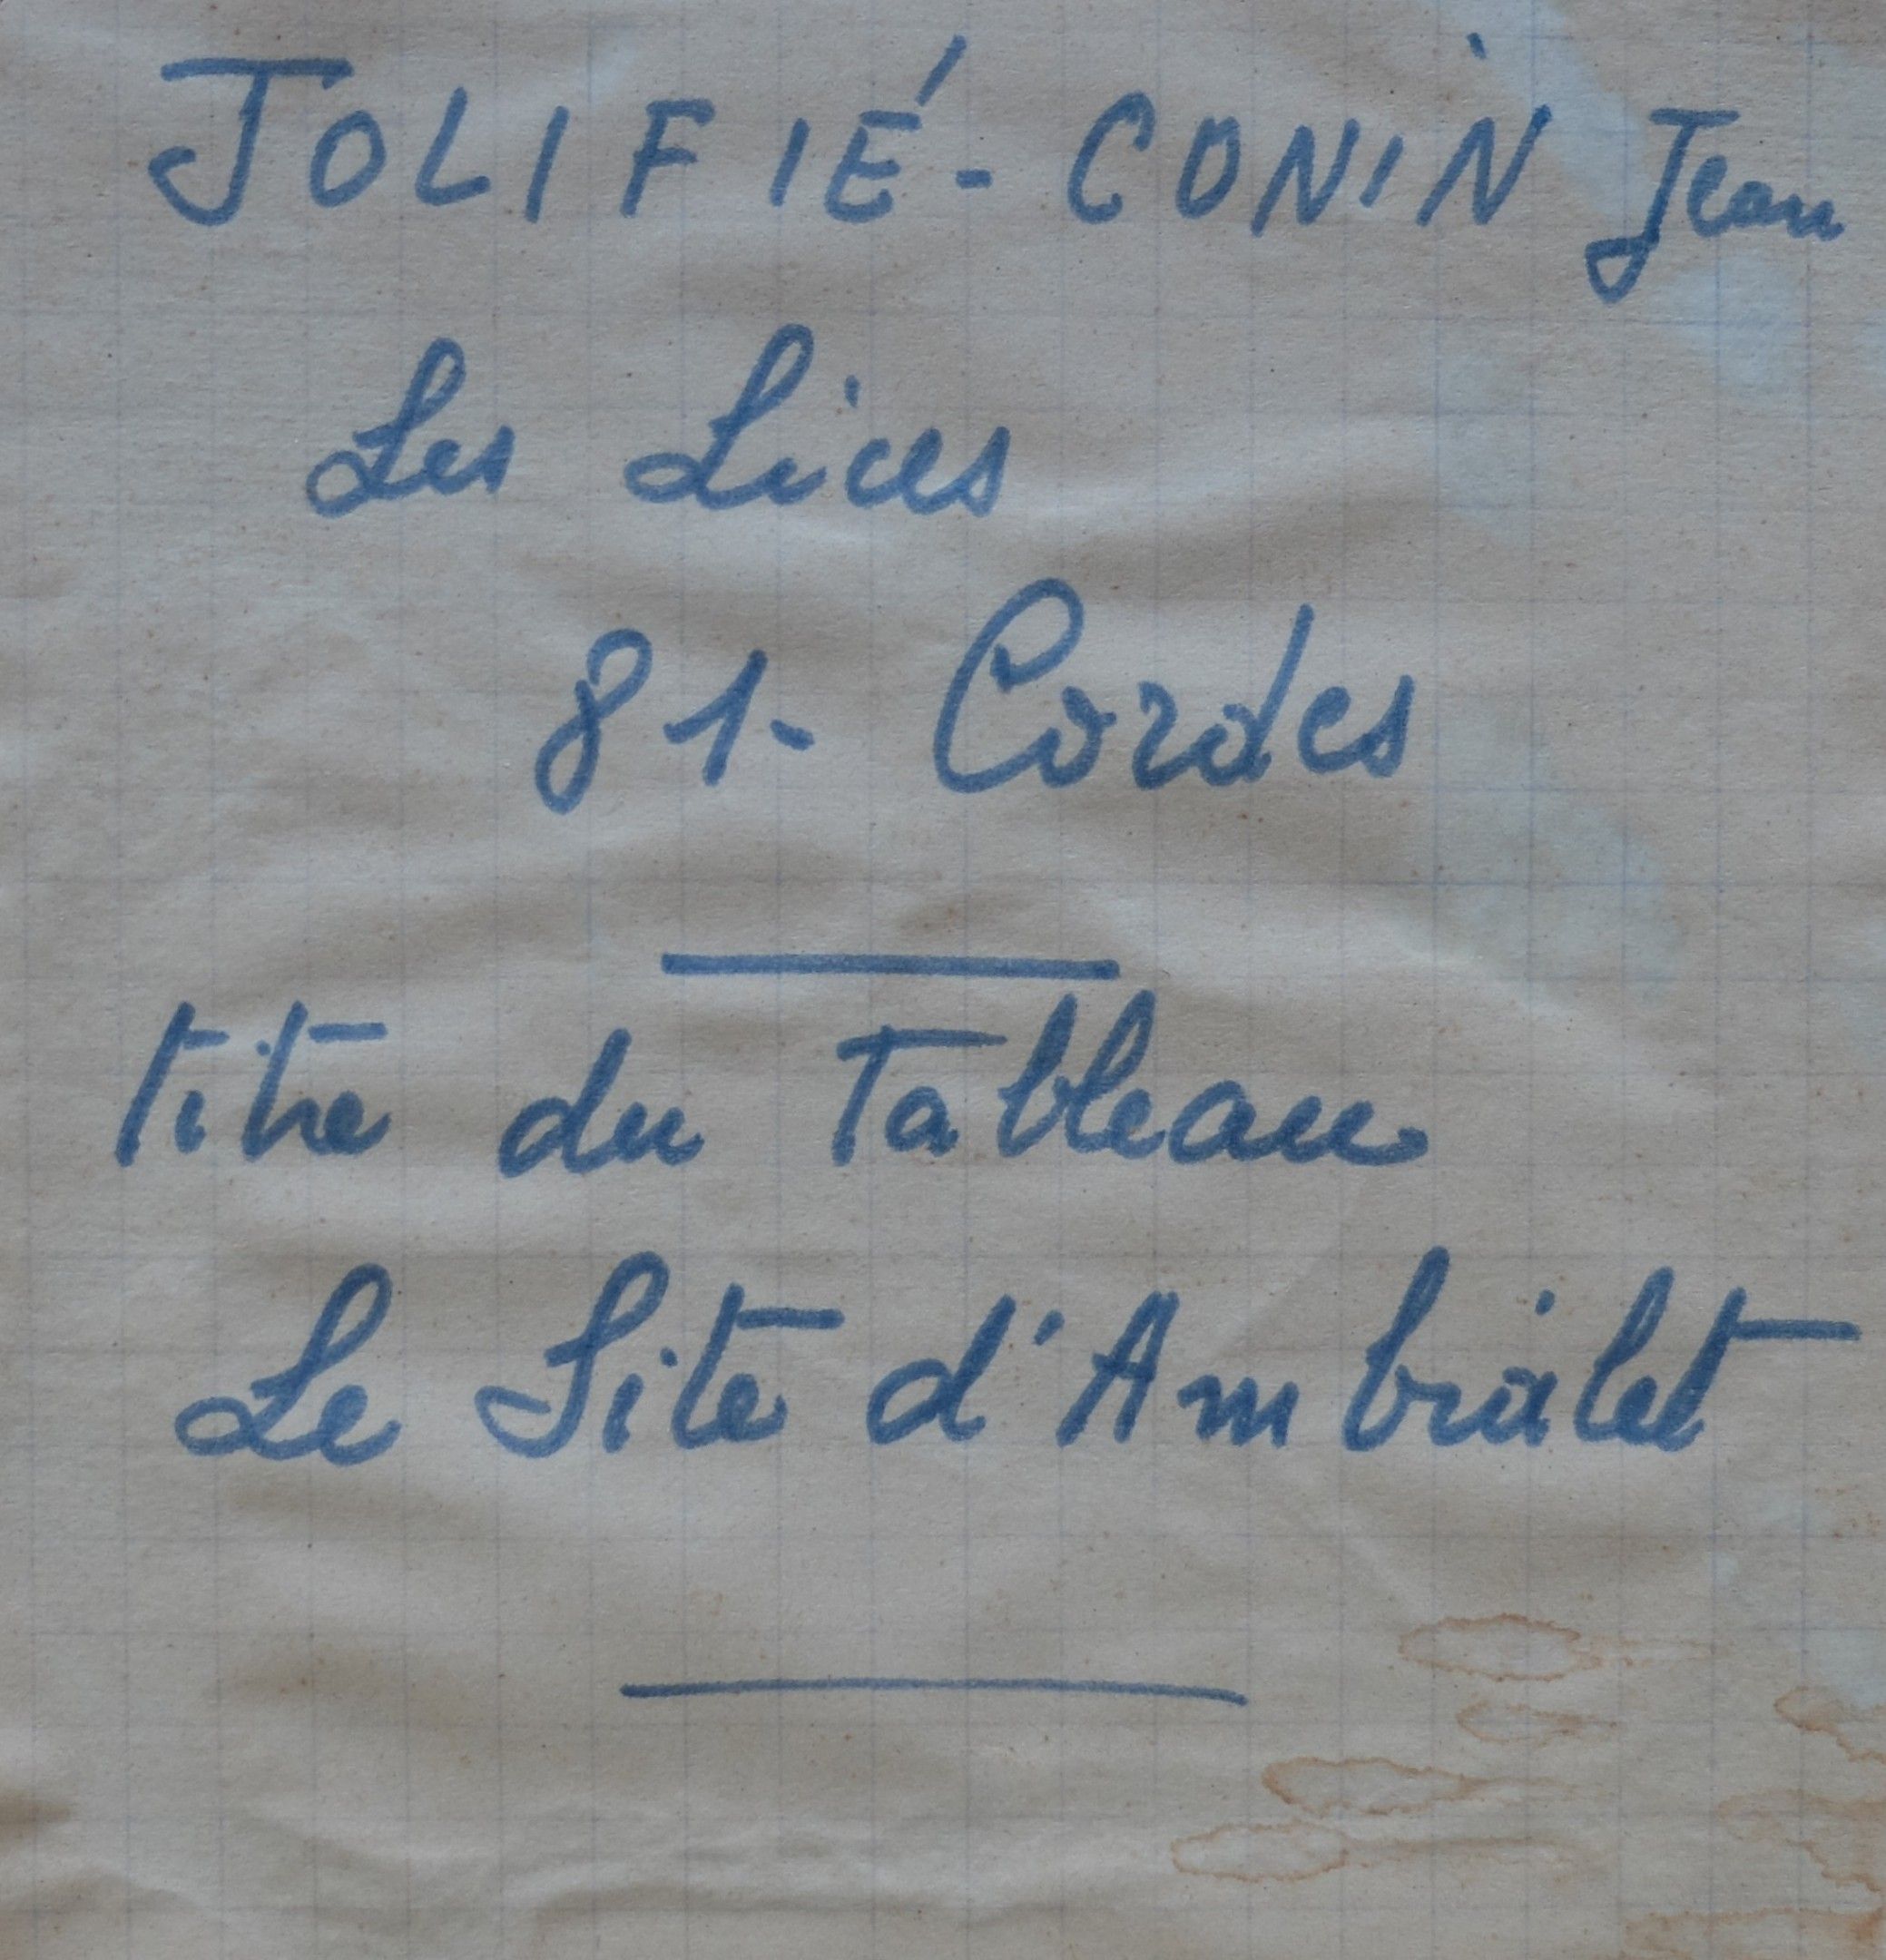 JOLIFIÉ - CONIN Jean
Les Lices
81- Cordes
titre du Tableau
Le Site d'Ambialet